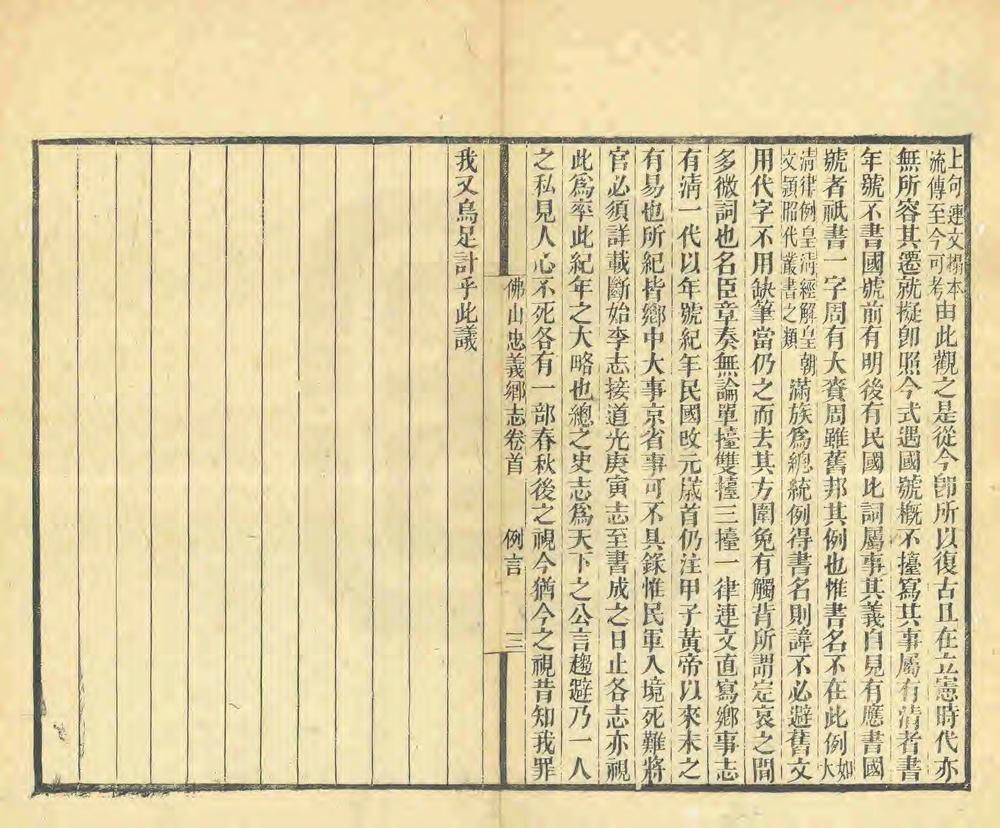 上句連文搨本
流傳至今可考
由此觀之是從今卽所以復古且在立憲時代亦
無所容其遷就擬卽照今式遇國號槪不擡寫其事屬有清者書
年號不書國號前有明後有民國比詞屬事其義自見有應書國
號者祇書一字周有大賚周雖舊邦其例也惟書名不在此例
如大
清律例皇清經解皇朝
文頴昭代叢書之類
滿族爲總統例得書名則諱不必避舊文
用代字不用缺筆當仍之而去其方圍免有觸背所謂定哀之間
多微詞也名臣章奏無論單擡雙擡三擡一律連文直寫鄉事志
有清一代以年號紀年民國改元歲首仍注甲子黃帝以來未之
有易也所紀皆鄉中大事京省事可不具錄惟民軍入境死難將
官必須詳載斷始李志接道光庚寅志至書成之日止各志亦視
此爲率此紀年之大略也總之史志爲天下之公言趨避乃一人
之私見人心不死各有一部春秋後之視今猶今之視昔知我罪
佛山忠義鄉志卷首 例言 三
我又烏足計乎此議